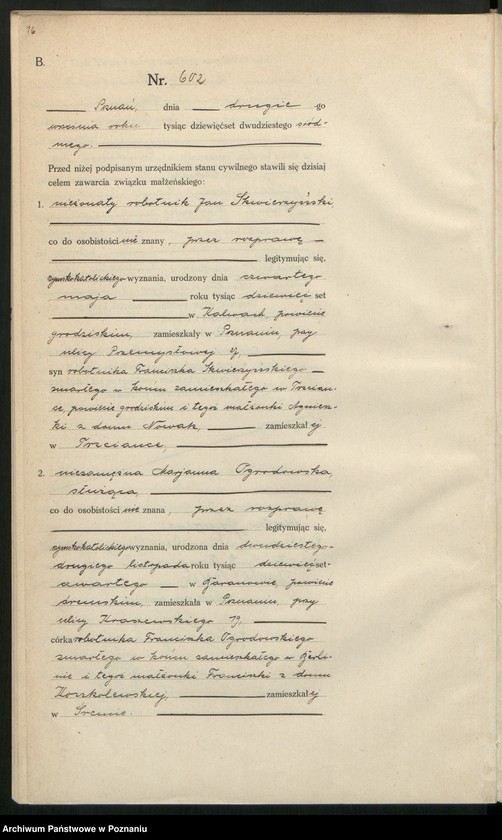 16
B.
Nr. 602
Poznań, dnia drugiego
września roku tysiąc dziewięćset dwudziestego siód-
mego.
Przed niżej podpisanym urzędnikiem stanu cywilnego stawili się dzisiaj
celem zawarcia związku małżeńskiego:
1. nieżonaty robotnik Jan Skwierzyński,
co do osobistości nie znany, przez rozprawę
legitymując się,
rzymskokatolickiego wyznania, urodzony dnia czwartego
maja roku tysiąc dziewięćset
w powiecie
grodziskim, zamieszkały w Poznaniu, przy
ulicy Przemysłowej
syn robotnika Franciszka Skwierzyńskiego
zmarłego w końcu zamieszkałego w Trzcian-
ce, powiecie grodziskim i tegoż małżonki Agniesz-
ki z domu Nowak, zamieszkałej
w Trzciance,
2. niezamężna Marjanna Ogrodowska,
służąca,
co do osobistości nie znana, przez rozprawę
legitymując się,
rzymskokatolickiego wyznania, urodzona dnia dwudziestego-
drugiego listopada roku tysiąc dziewięćset-
czwartego w Garanowie, powiecie
śremskim, zamieszkała w Poznaniu, przy
ulicy Kraszewskiego
córka robotnika Franciszka Ogrodowskiego
zmarłego w końcu zamieszkałego w Berli-
nie i tegoż małżonki Franciszki z domu
zamieszkałej
w Śremie.
Archiwum Państwowe w Poznaniu